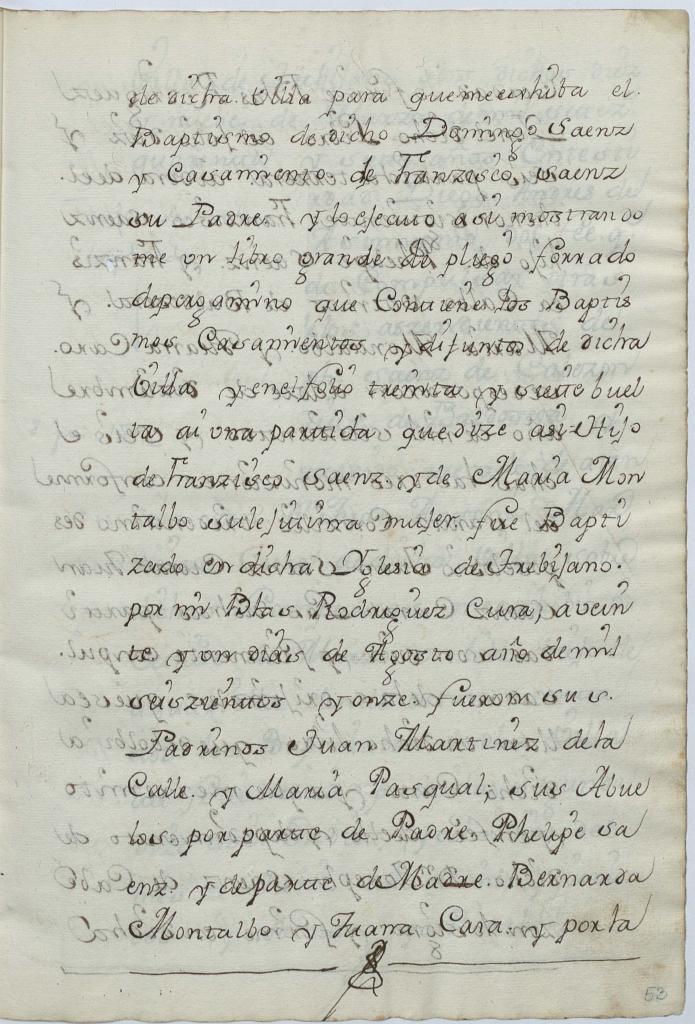 de dicha Villa para que me exhiba el.
Baptismo de dicho Domingo Saenz
y Casamiento de Franzisco Saenz
su Padre. y lo ejecuto asi mostrando
me un libro grande de pliego forrado
de pergamino que Contiene los Baptis
mos Casamientos y difuntos de dicha
Villa y en el folio treinta y siete buel
ta ai una partida que dize asi = Hijo
de Franzisco Saenz. y de Maria Mon
talbo su lejitima mujer. fue Bapti
zado en dicha Yglesia de Trebijano.
por mi Blas Rodriguez Cura, a vein
te y un dias de Agosto año de mil
seiszientos y onze. fueron sus.
Padrinos Juan Martinez de la
Calle. y Maria Pasqual; sus Abue
los por parte de Padre. Phelipe Sa
enz. y de parte de Madre. Bernarda
Montalbo y Juana Cara. y por la
53